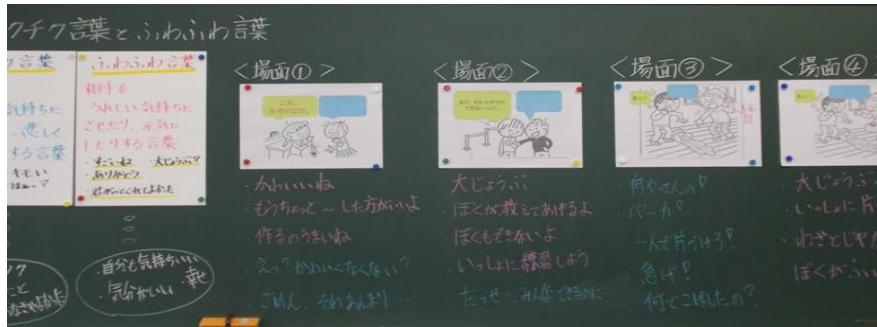 クチク言葉とふわふわ言葉
ク言葉
気持ちに
悲しく
する言葉
ふわふわ言葉
相手を
うれしい気持ちに
させたり、元気に
したりする言葉
・すごいね ・大じょうぶ?
・ありがとう
・君がいてくれてよかった
・自分も気持ちいい
・気分がいい ・幸せ
<場面①>
・かわいいね
・もうちょっと~した方がいいよ
・作るのうまいね
・えっ?かわいくなくない?
・ごめん、それあんまり…
<場面②>
・大じょうぶ
・ぼくが教えてあげるよ
・ぼくもできないよ
・いっしょに練習しよう
・だっせ…みんなできるのに…
<場面③>
・何やってんの!
・バーカ!
・一人で片づけろ!
・急げ!
・何でこぼしたの?
<場面④>
・大じょうぶ
・いっしょに片
・わざとじゃ
・ぼくが